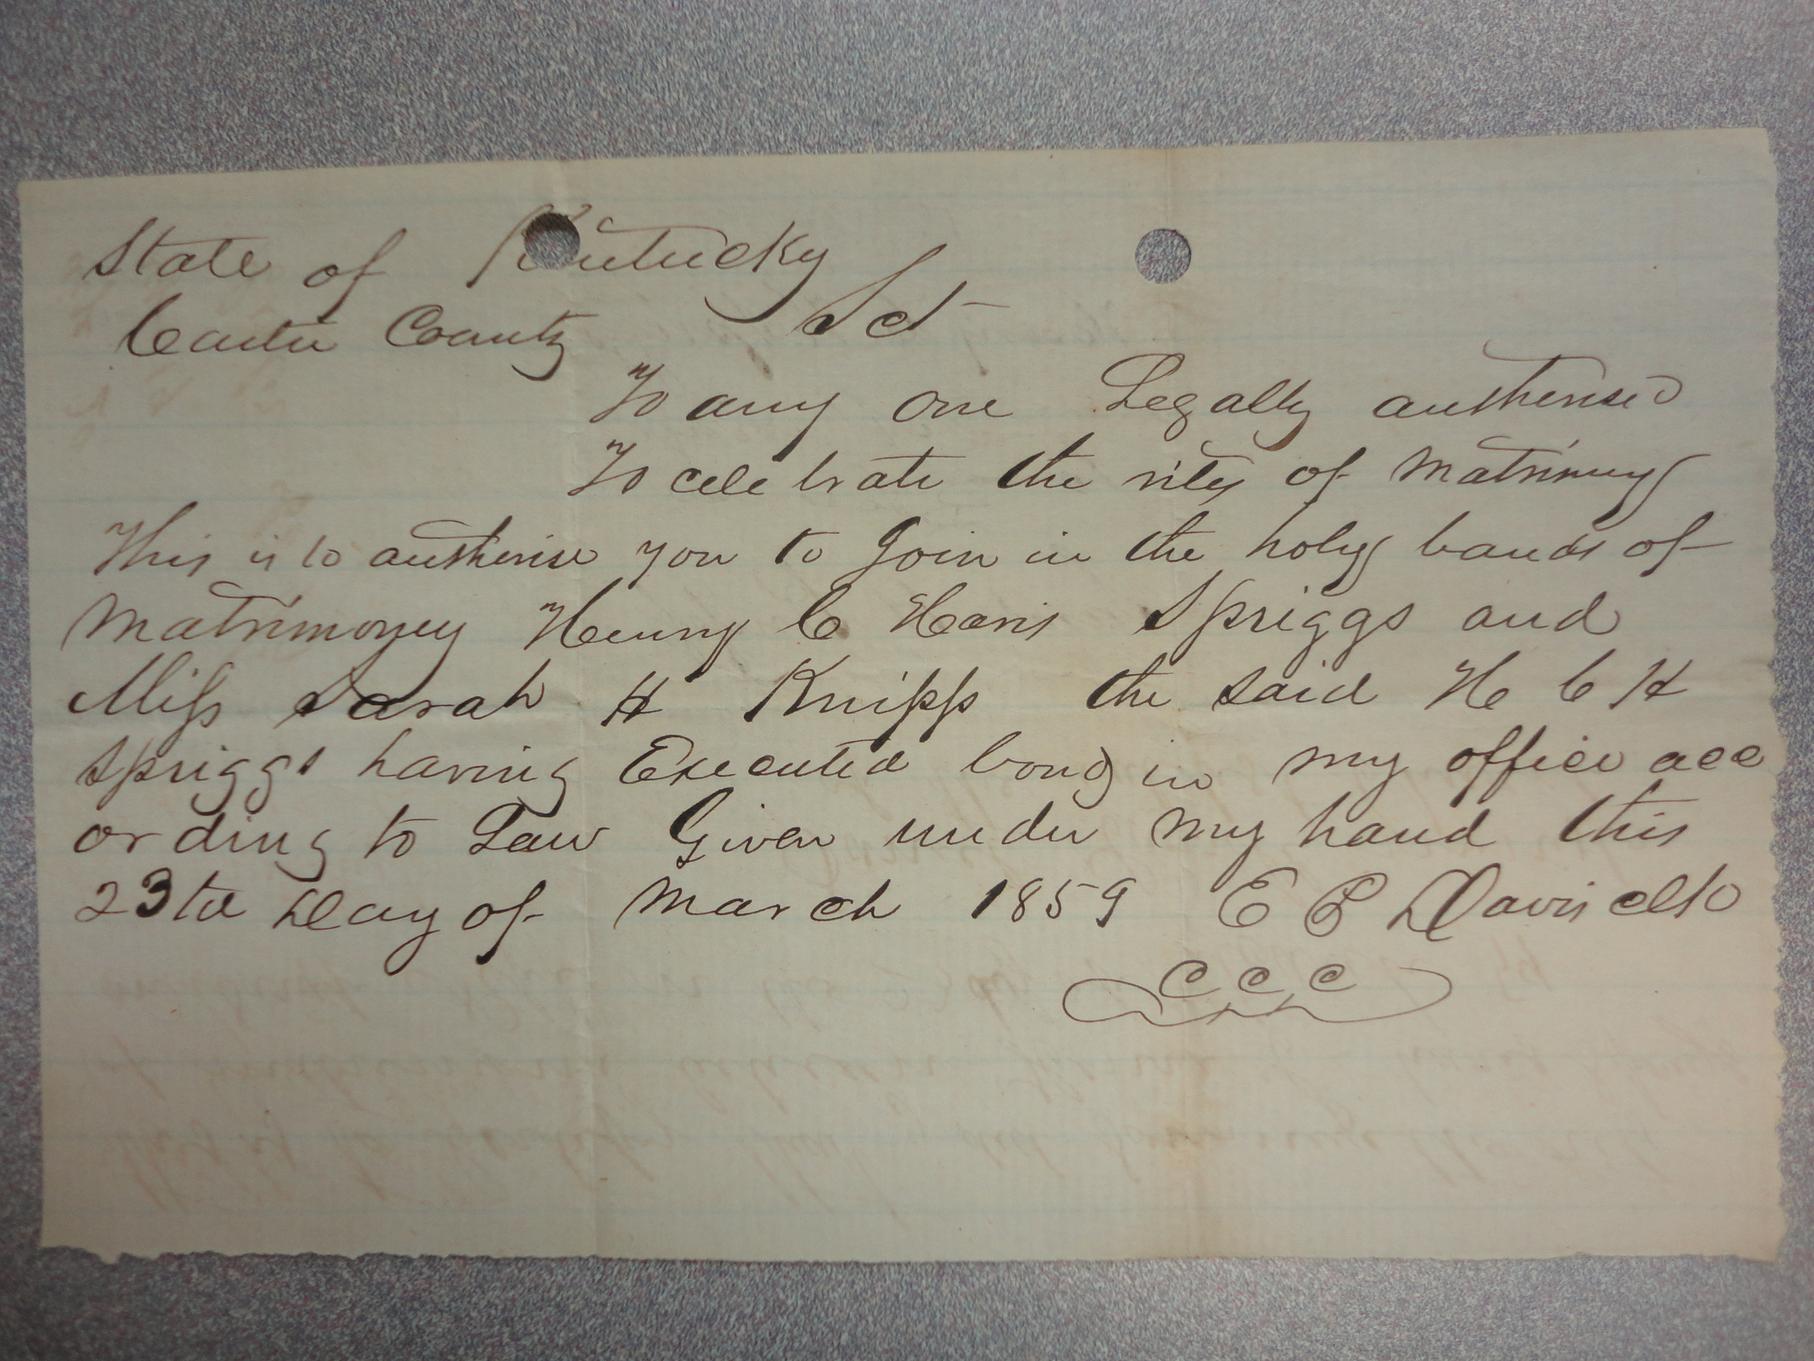 State of Kentucky
Carter County Sct
To any one Legally authorised
To celebrate the rites of Matrimony
This is to authorise you to Join in the holy bands of
Matrimoney Henry C Haris Spriggs and
Miss Sarah H Knipp the said H C H
Spriggs having Executed bond in my office acc
ording to Law Given under my hand this
23td Day of March 1859 E P Davis clk
C C C